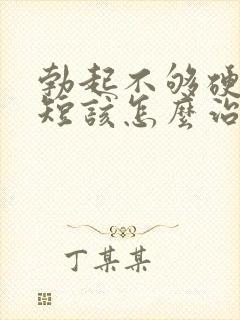 勃起不够硬
短該怎麼治
丁某某